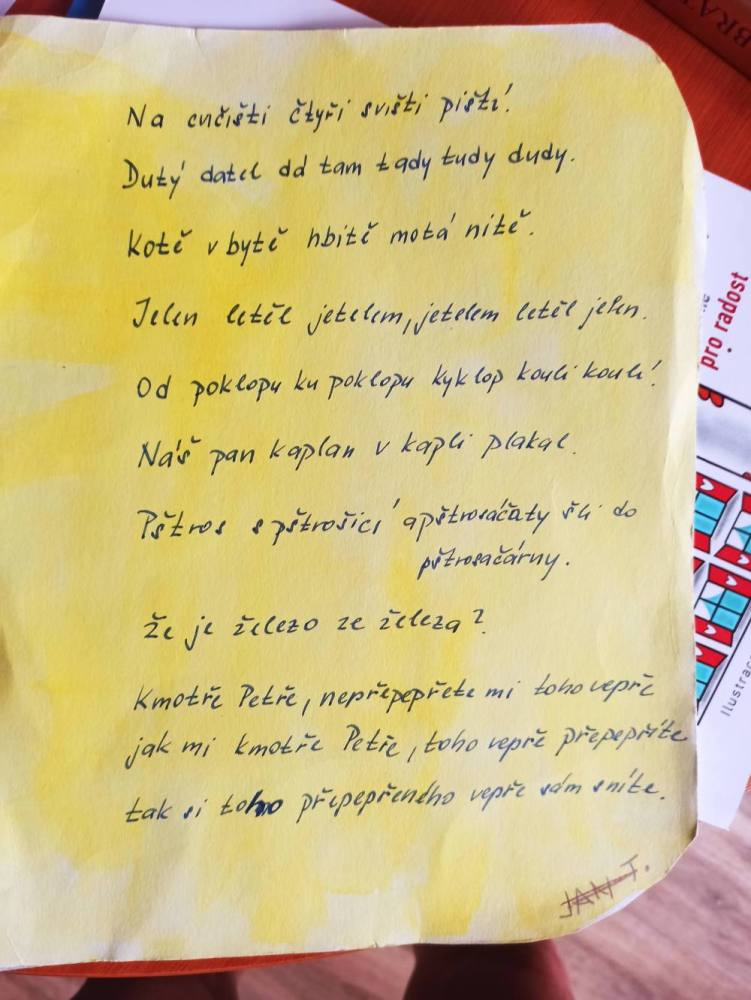 BRA
Na cvičišti čtyři svišti piští.
Dutý datel dd tam tady tudy dudy.
Kotě v bytě hbitě motá nitě.
Jelen letěl jetelem, jetelem letěl jelen.
Od poklopu ku poklopu kyklop koulí koulí.
Náš pan kaplan v kapli plakal.
Pštros s pštrosicí a pštrosáčaty šli do
pštrosačárny.
Že je železo ze železa?
Kmotře Petře, nepřepepřete mi toho vepře
jak mi kmotře Petře, toho vepře přepepříte
tak si toho přepepřeného vepře sám sníte.
JAN T.
pro radost
Ilustrac